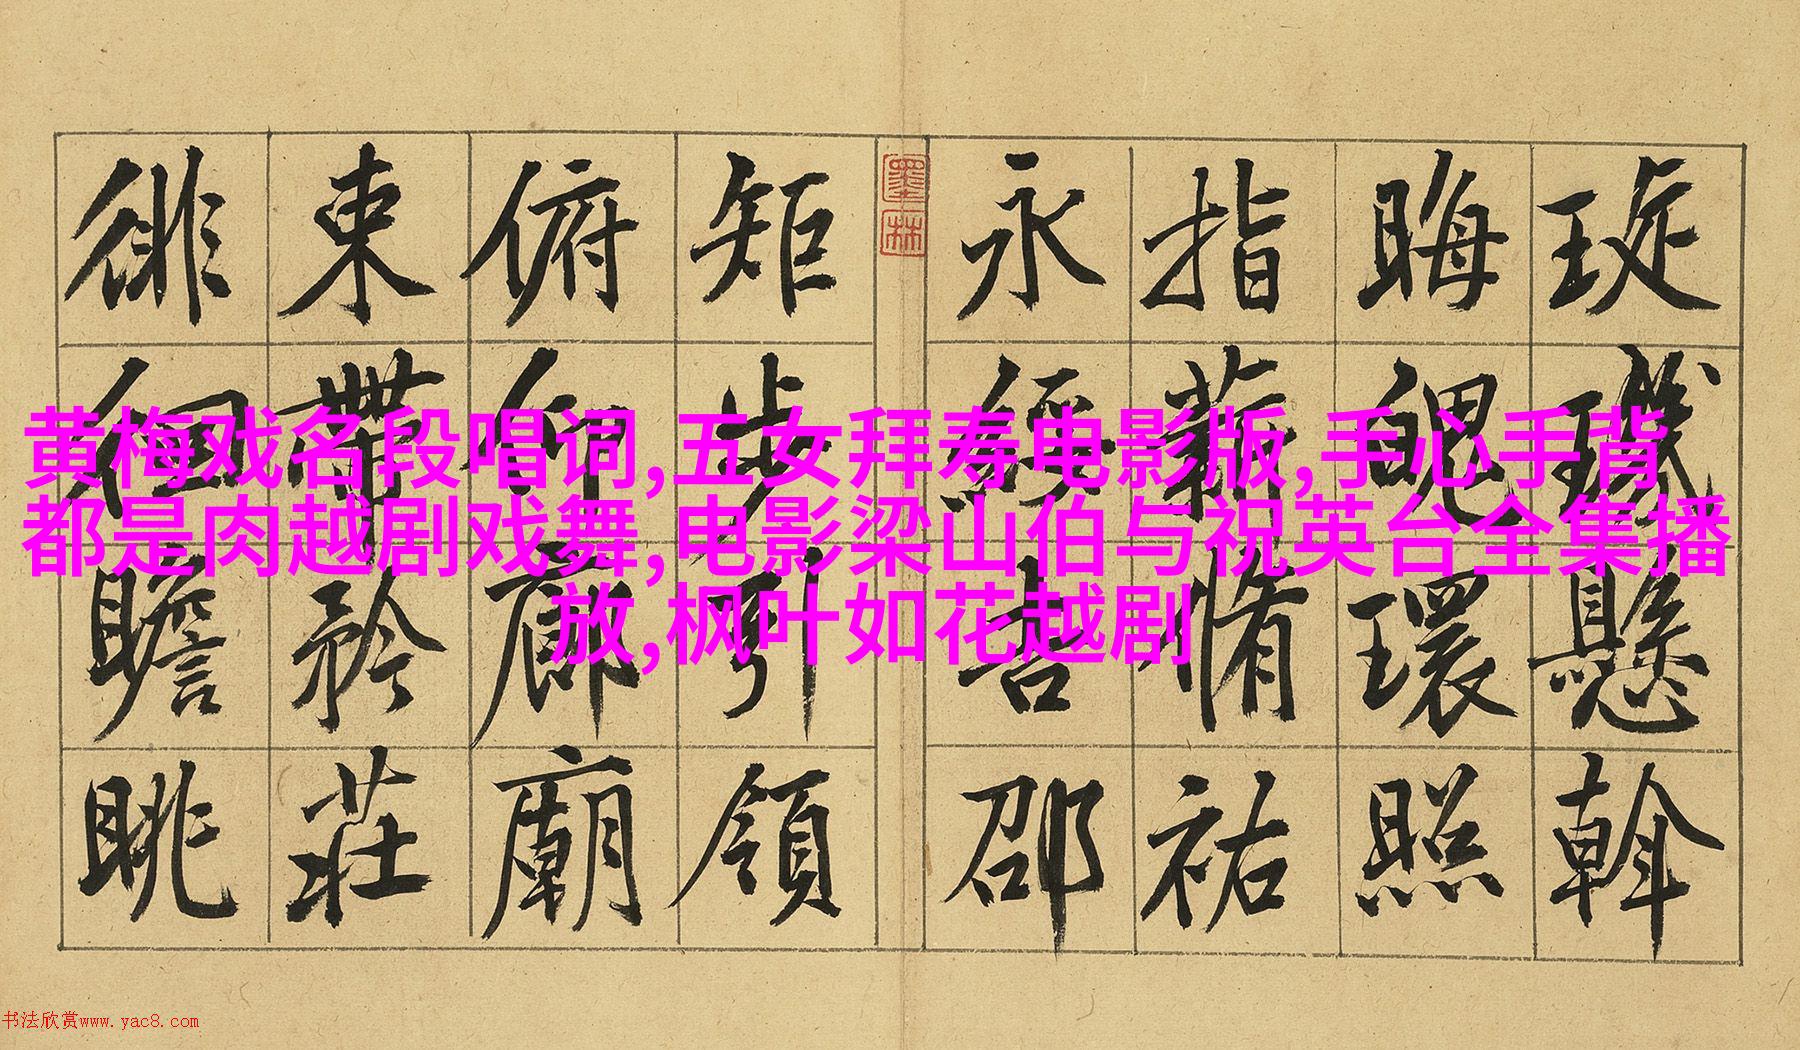 琁璣懸斡
晦魄環照
指薪脩祐
永綏吉邵
墨林
矩步引領
俯仰廊廟
束帶矜莊
徘徊瞻眺
黄梅戏名段唱词,五女拜寿电影版,手心手背
都是肉越剧戏舞,电影梁山伯与祝英台全集播
放,枫叶如花越剧
书法欣赏www.yac8.com